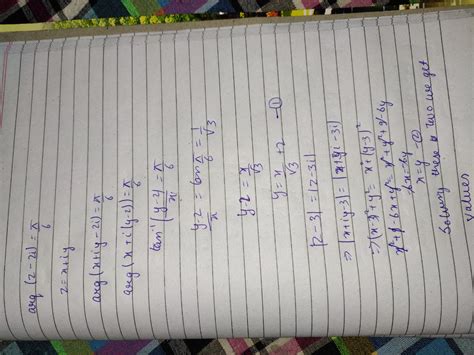 arg (z-2i) = π/6
z = x+iy
arg (x+iy-2i) = π/6
arg (x+i(y-2)) = π/6
tan⁻¹ (y-2/x) = π/6
y-2/x = tan π/6 = 1/√3
y-2 = x/√3
y = x/√3 + 2 —①
|z-3| = |z-3i|
⇒ |x+iy-3| = |x+iy-3i|
⇒ (x-3)²+y² = x²+(y-3)²
x²+9-6x+y² = x²+y²+9-6y
-6x = -6y
x = y —②
Solving these two we get
values